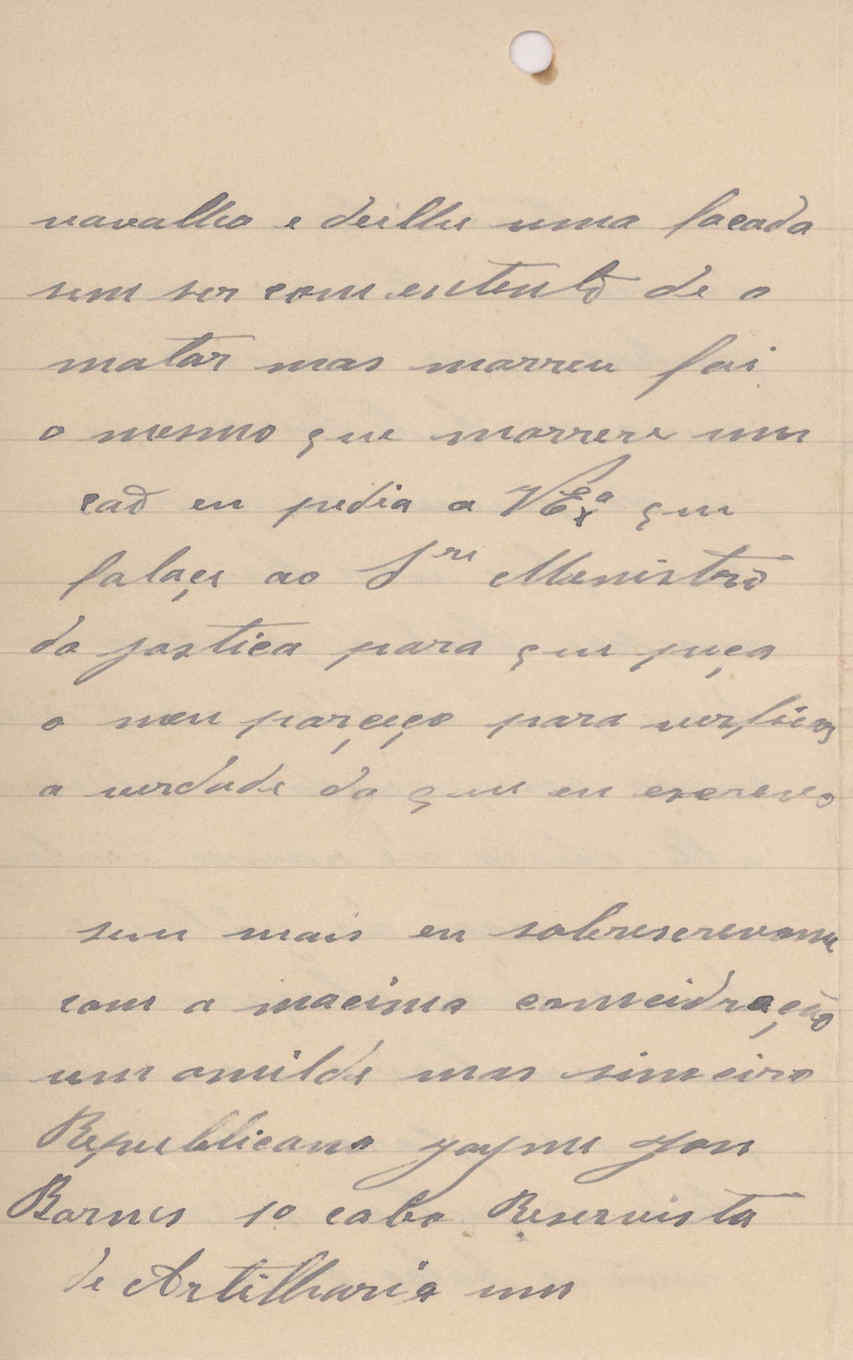 navalha e deilhe uma facada
sem ser com entento de o
matar mas morreu foi
o mesmo que morrere um
cao eu pedia a VExª que
falaçe ao Sre Menistro
da jostica para que peça
o meu parçeço para verficar
a verdade do que eu escrevo
sem mais eu sobrescrevome
com a macima comcidração
um omilde mas sinceiro
Republicano Jayme Jou
Barnes 1º cabo Reservista
de Artilharia um